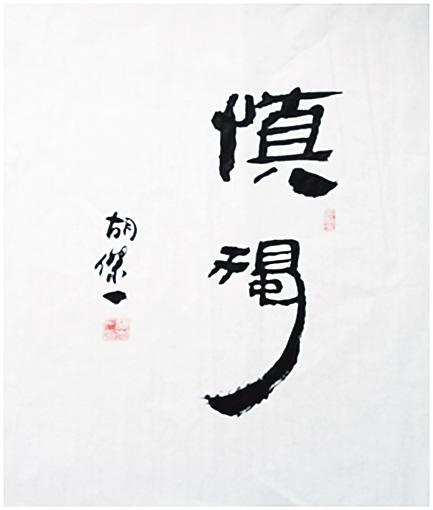 慎獨
胡傑一